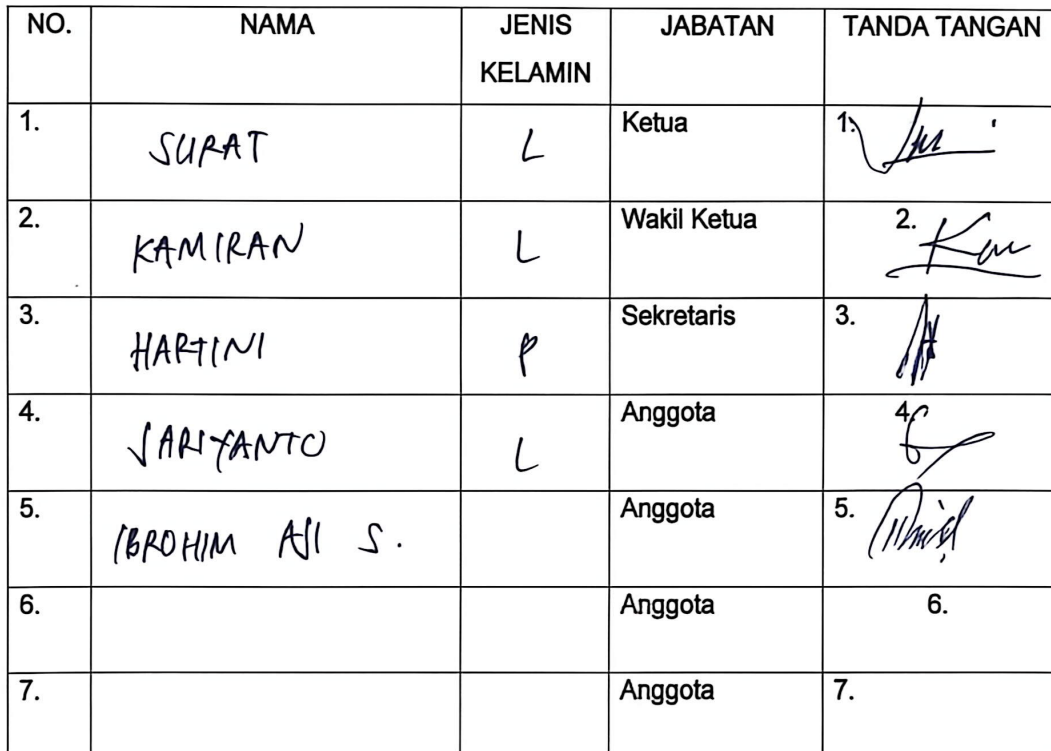 NO. NAMA JENIS KELAMIN JABATAN TANDA TANGAN
1. SURAT L Ketua 1.
2. KAMIRAN L Wakil Ketua 2.
3. HARTINI P Sekretaris 3.
4. SARIYANTO L Anggota 4.
5. IBROHIM AJI S. Anggota 5.
6. Anggota 6.
7. Anggota 7.